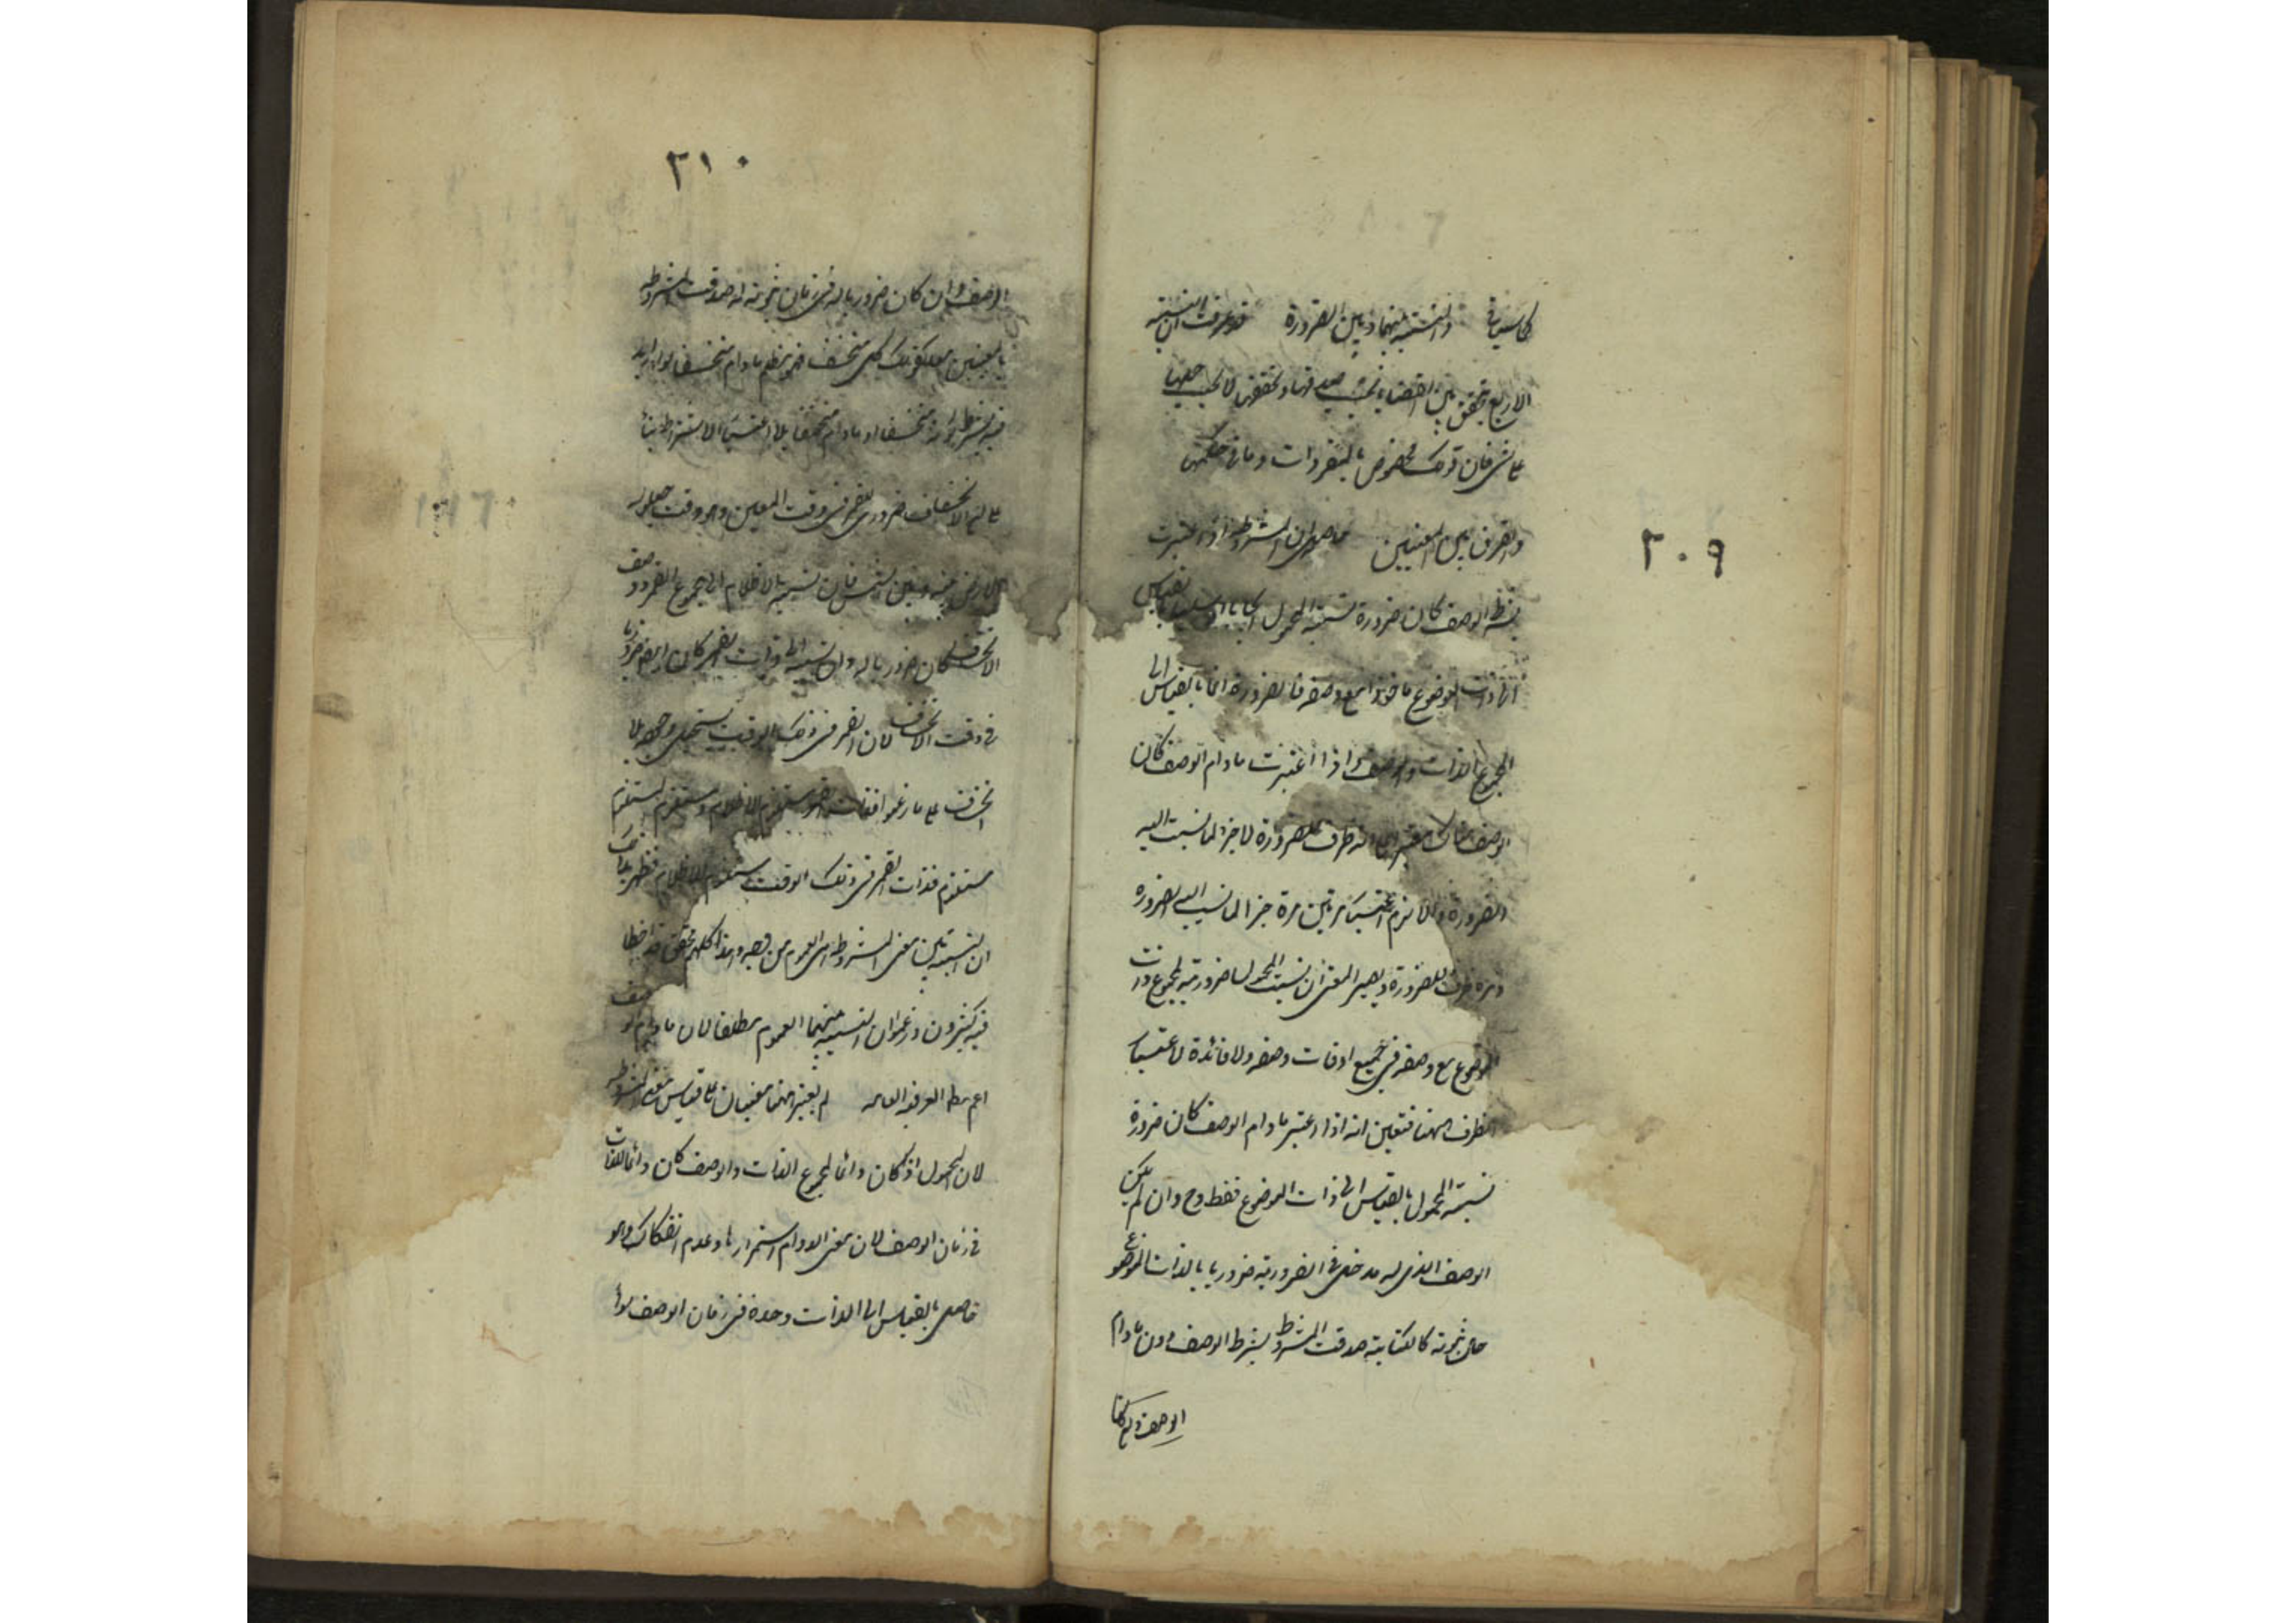 ٢٠٩
كما سياتي والنسبة بينهما وبين الضرورة قد عرفت ان النسبة
الاربع تحقق بين القضايا بحسب صدقها وتحققها لا بحسب حملها
على شي فان ذلك مخصوص بالمفردات وما في حكمها
والفرق بين المعنيين ان المشروطة اذا اعتبرت
بشرط الوصف كان ضرورة نسبة المحمول ايجابا او سلبا بالقياس
الى ذات الموضوع ماخوذا مع وصفه فالضرورة انما بالقياس الى
المجموع الذات والوصف واذا اعتبرت ما دام الوصف كان
الوصف هناك معتبرا على انه ظرف للضرورة لا جزء لما نسبت اليه
الضرورة والا لزم اعتباره مرتين مرة جزء لما نسب اليه الضرورة
ومرة ظرف للضرورة ويصير المعنى ان نسبت المحمول ضرورية لمجموع ذات
الموضوع مع وصفه في جميع اوقات وصفه ولا فائدة لاعتبار
الظرف ههنا فتعين انه اذا اعتبر ما دام الوصف كان ضرورة
نسبة المحمول بالقياس الى ذات الموضوع فقط وح وان لم يكن
الوصف الذي له مدخل في الضرورية ضروريا بالذات الموضوع
حال ثبوته كالكتابة صدقت المشروط بشرط الوصف دون ما دام
الوصف
٢١٠
الوصف وان كان ضروريا له في زمان ثبوته له صدقت المشروطة
بالمعنيين معا كقولك كل منخسف فهو مظلم ما دام منخسفا
منخسفا او ما دام منخسفا بلا اعتبار الاشتراط بنا
على ان الانخساف ضروري للقمر في وقت المعين وهو وقت حيلولة
الارض بينه وبين الشمس فان نسبة الاظلام الى مجموع القمر ووصف
الانخساف كان ضروريا له وان نسبته الى ذات القمر كان ايضا ضروريا
في وقت الانخساف لان القمر في ذلك الوقت يستحيل وجوده بلا
انخساف على ما زعموا فذات القمر مستلزم للانخساف ومستلزم المستلزم
مستلزم فذات القمر في ذلك الوقت مستلزم للاظلام فظهر
ان النسبة بين معنى المشروطة هي العموم من وجه
فيه كثيرون وزعموا ان النسبة بينهما العموم مطلقا لان ما دام الوصف
اعم مط العرفية العامة لم يعتبر ههنا معنيان على قياس معنى المشروطة
لان المحمول اذا كان دائما لمجموع الذات والوصف كان دائما للذات
في زمان الوصف لان معنى الدوام استمرارها وعدم انفكاك وهو
حاصل بالقياس الى الذات وحدة في زمان الوصف سواء